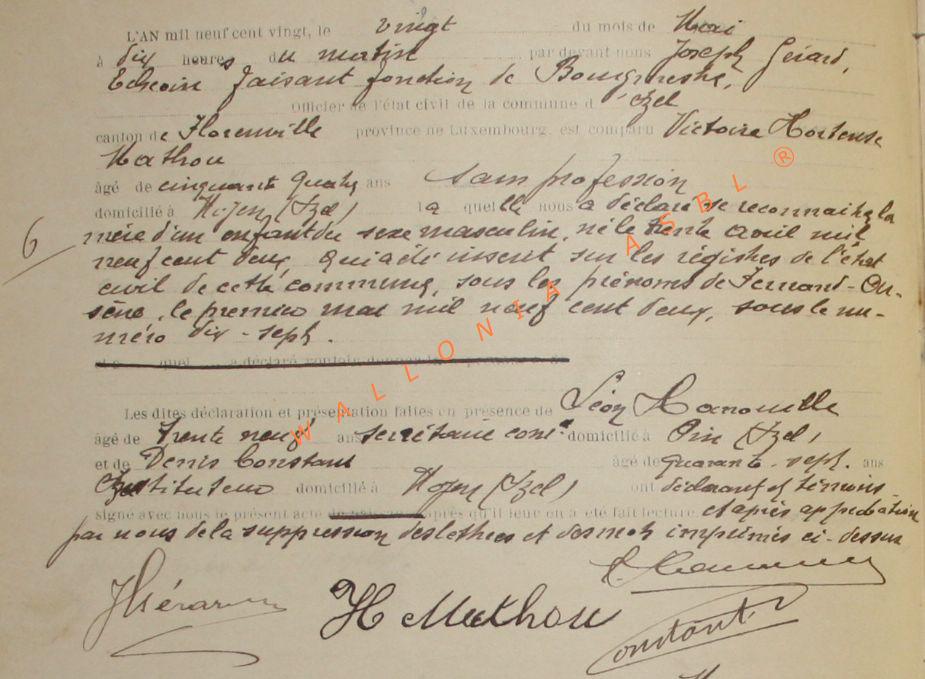 L'AN mil neuf cent vingt, le vingt du mois de Mai
à dix heures du matin par devant nous Joseph Gérard,
Echevin faisant fonction de Bourgmestre,
Officier de l'état civil de la commune d'Izel
canton de Florenville province de Luxembourg, est comparu Victoire Hortense
Mathou
âgé de cinquante quatre ans sans profession
domicilié à Moyen (Izel) la quelle nous a déclaré se reconnaître la
6 mère d'un enfant du sexe masculin, né le trente avril mil
neuf cent deux qui a été inscrit sur les régistres de l'état
civil de cette commune, sous les prénoms de Fernand-Ar-
sène, le premier mai mil neuf cent deux, sous le nu-
méro dix-sept.
quel a déclaré vouloir donner
Les dites déclaration et présentation faites en présence de Léon Hanouille
âgé de trente neuf ans secrétaire comal domicilié à Pin (Izel)
et de Denis Constant âgé de quarante-sept ans
Instituteur domicilié à Moyen (Izel) ont déclarant et témoins
signé avec nous le présent acte après qu'il leur en a été fait lecture, et après approbation
par nous de la suppression des lettres et des mots imprimés ci-dessus
JGérard H Mathou
Constant
WALLONIA ASBL ®